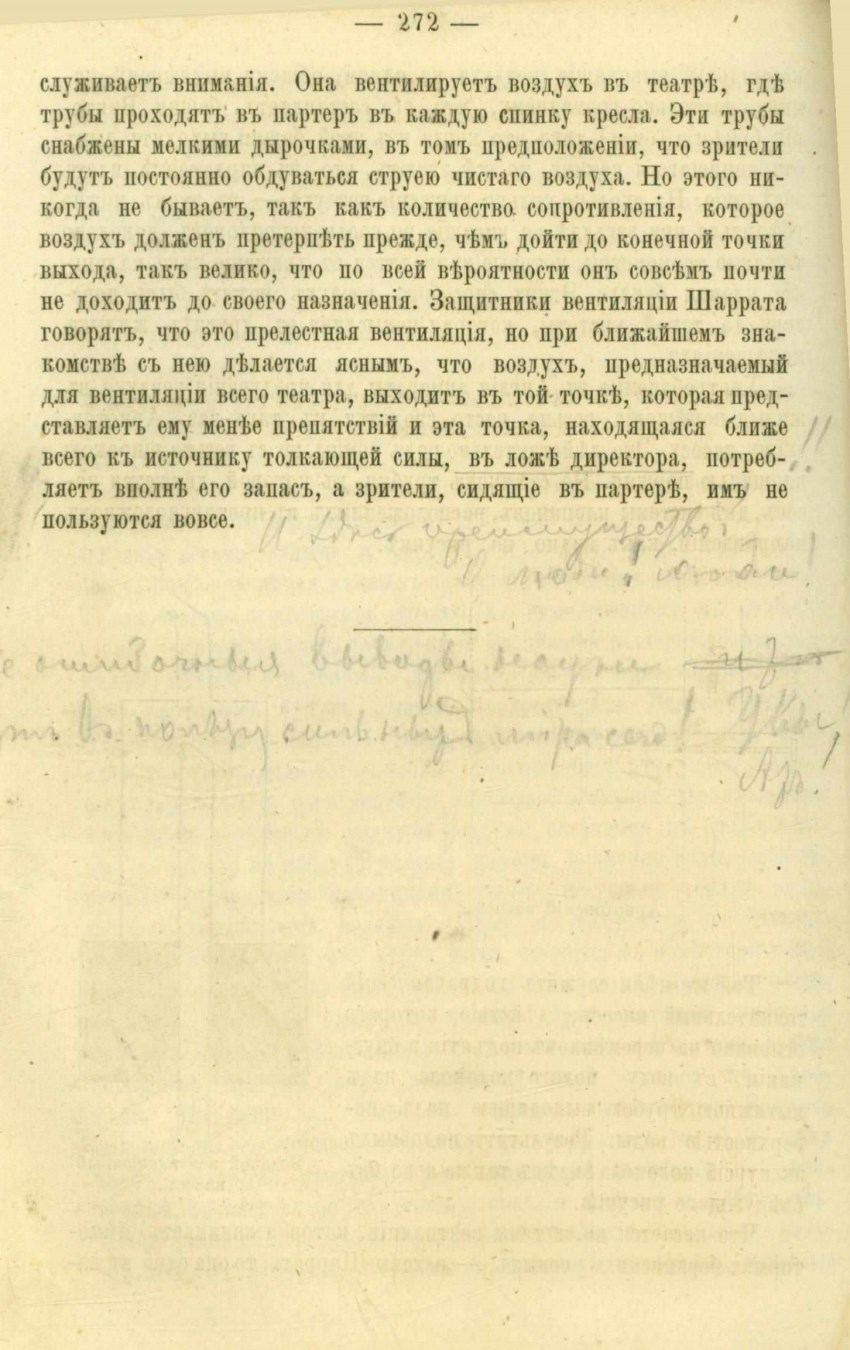 — 272 —
служиваетъ вниманія. Она вентилируетъ воздухъ въ театрѣ, гдѣ
трубы проходятъ въ партеръ въ каждую спинку кресла. Эти трубы
снабжены мелкими дырочками, въ томъ предположеніи, что зрители
будутъ постоянно обдуваться струею чистаго воздуха. Но этого ни-
когда не бываетъ, такъ какъ количество сопротивленія, которое
воздухъ долженъ претерпѣть прежде, чѣмъ дойти до конечной точки
выхода, такъ велико, что по всей вѣроятности онъ совсѣмъ почти
не доходитъ до своего назначенія. Защитники вентиляціи Шаррата
говорятъ, что это прелестная вентиляція, но при ближайшемъ зна-
комствѣ съ нею дѣлается яснымъ, что воздухъ, предназначаемый
для вентиляціи всего театра, выходитъ въ той точкѣ, которая пред-
ставляетъ ему менѣе препятствій и эта точка, находящаяся ближе
всего къ источнику толкающей силы, въ ложѣ директора, потреб-
ляетъ вполнѣ его запасъ, а зрители, сидящіе въ партерѣ, имъ не
пользуются вовсе.
И здѣсь преимущество!
О люди! люди!
ошибочныя выводы науки
въ пользу сильныхъ міра сего! Увы!